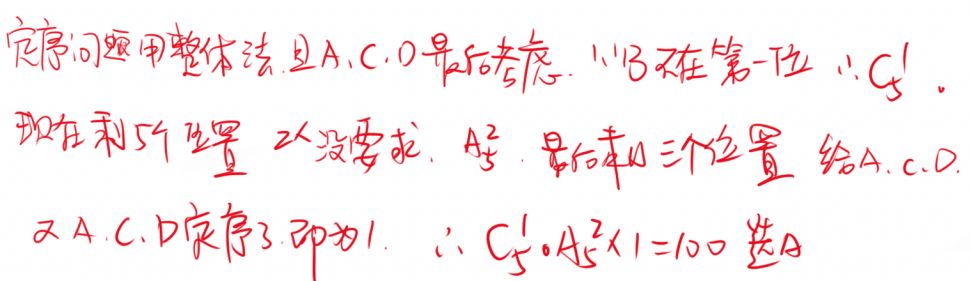 定序问题用整体法.且A.C.D最后考虑.∵B不在第一位 ∴C₅¹.
现在剩5个位置 2人没要求. A₅². 最后剩三个位置 给A.C.D.
又A.C.D定序了.即为1. ∴C₅¹·A₅²×1=100 选A